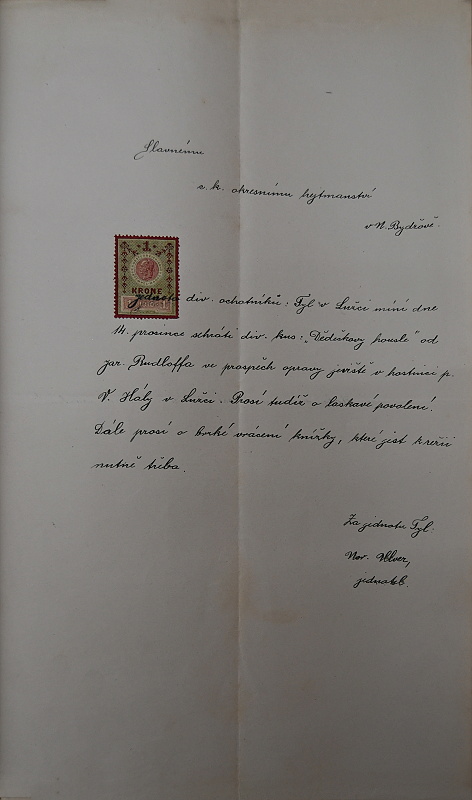 Slavnému
c. k. okresnímu hejtmanství
v N. Bydžově.
1
KRONE
Jednota div. ochotníků: Tyl v Lužci míní dne
14. prosince sehráti div. kus: „Dědečkovy housle" od
jar. Rudloffa ve prospěch opravy jeviště v hostinci p.
V. Hály v Lužci. Prosí tudíž o laskavé povolení.
Dále prosí o brzké vrácení knížky, které jest k režii
nutně třeba.
Za jednotu Tyl:
jednatel.